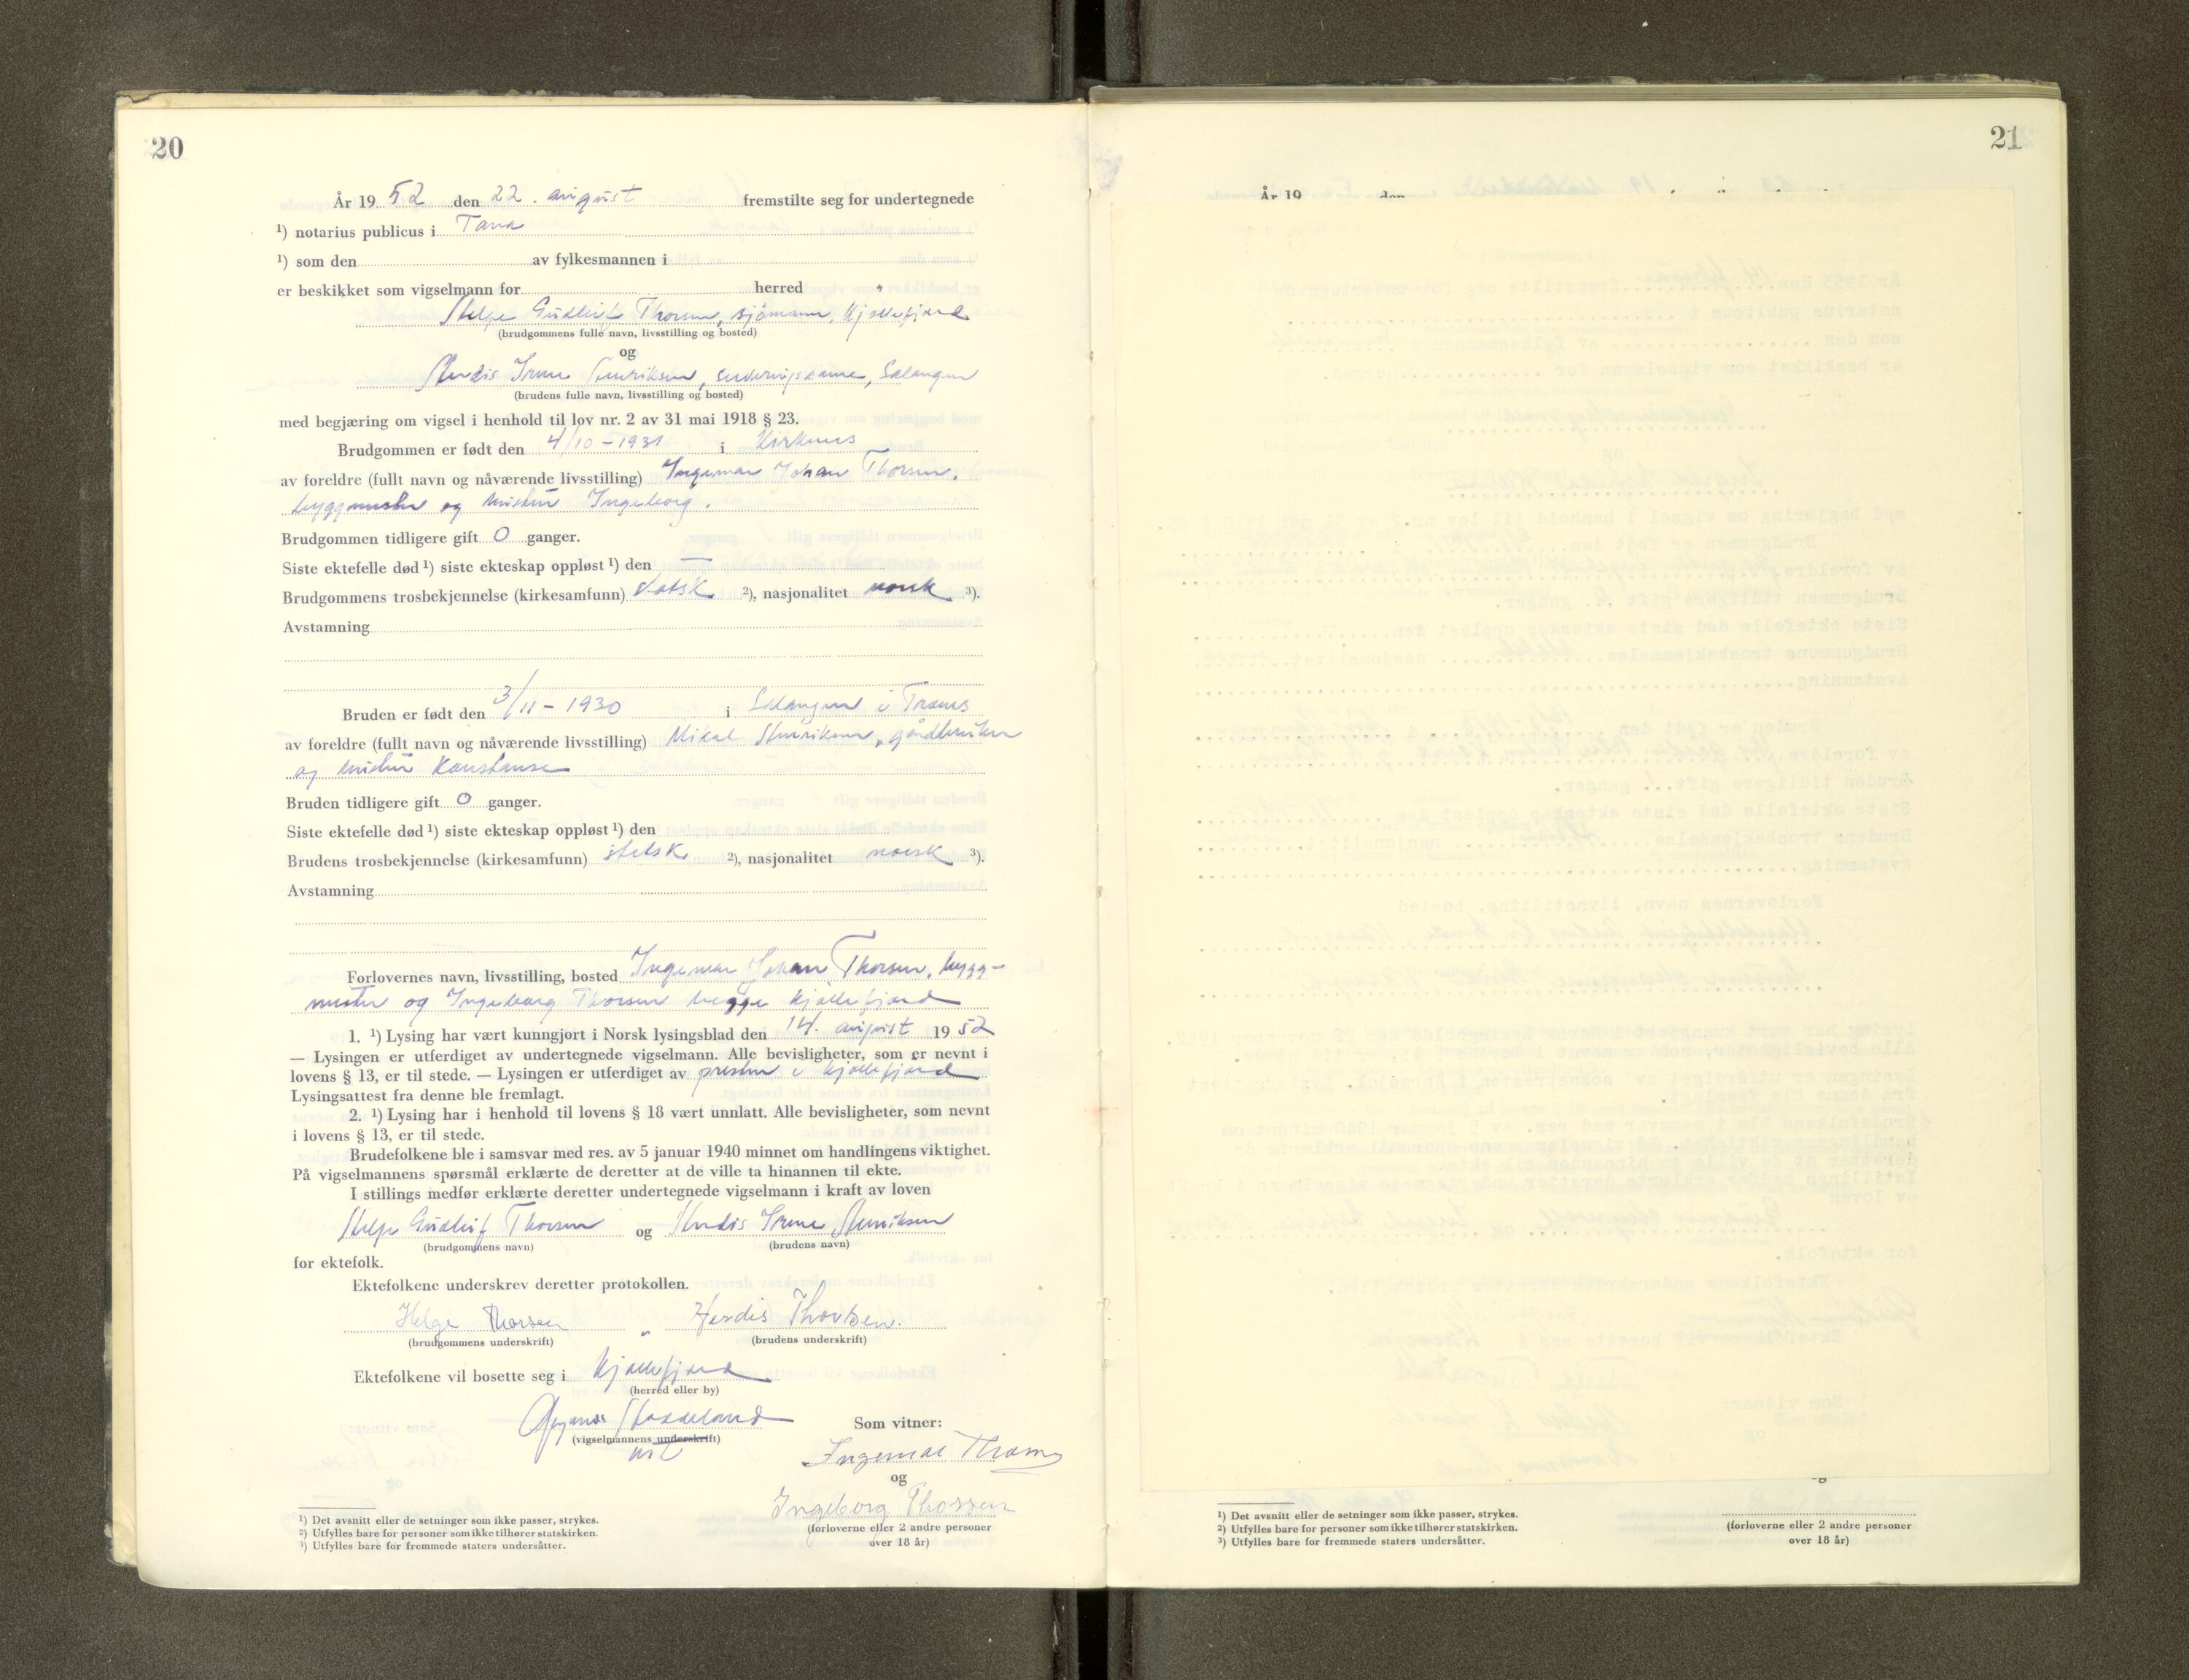 20
År 19 52 den 22. august fremstilte seg for undertegnede
¹) notarius publicus i Tana
¹) som den av fylkesmannen i
er beskikket som vigselmann for herred
Helge Gudleif Thorsen, sjømann, Kjøllefjord
(brudgommens fulle navn, livsstilling og bosted)
og
Herdis Irene Henriksen, serveringsdame, Salangen
(brudens fulle navn, livsstilling og bosted)
med begjæring om vigsel i henhold til lov nr. 2 av 31 mai 1918 § 23.
Brudgommen er født den 4/10 - 1931 i Kirkenes
av foreldre (fullt navn og nåværende livsstilling) Ingemar Johan Thorsen,
byggmester og hustru Ingeborg.
Brudgommen tidligere gift 0 ganger.
Siste ektefelle død ¹) siste ekteskap oppløst ¹) den —
Brudgommens trosbekjennelse (kirkesamfunn) statsk. ²), nasjonalitet norsk ³).
Avstamning
Bruden er født den 3/11 - 1930 i Salangen i Troms
av foreldre (fullt navn og nåværende livsstilling) Mikal Henriksen, gårdbruker
og hustru Konstanse
Bruden tidligere gift 0 ganger.
Siste ektefelle død ¹) siste ekteskap oppløst ¹) den
Brudens trosbekjennelse (kirkesamfunn) statsk. ²), nasjonalitet norsk ³).
Avstamning
Forlovernes navn, livsstilling, bosted Ingemar Johan Thorsen, bygg-
mester og Ingeborg Thorsen begge Kjøllefjord
1. ¹) Lysing har vært kunngjort i Norsk lysingsblad den 14. august 19 52
— Lysingen er utferdiget av undertegnede vigselmann. Alle bevisligheter, som er nevnt i
lovens § 13, er til stede. — Lysingen er utferdiget av presten i Kjøllefjord
Lysingsattest fra denne ble fremlagt.
2. ¹) Lysing har i henhold til lovens § 18 vært unnlatt. Alle bevisligheter, som nevnt
i lovens § 13, er til stede.
Brudefolkene ble i samsvar med res. av 5 januar 1940 minnet om handlingens viktighet.
På vigselmannens spørsmål erklærte de deretter at de ville ta hinannen til ekte.
I stillings medfør erklærte deretter undertegnede vigselmann i kraft av loven
Helge Gudleif Thorsen og Herdis Irene Henriksen
(brudgommens navn) (brudens navn)
for ektefolk.
Ektefolkene underskrev deretter protokollen.
Helge Thorsen Herdis Thorsen.
(brudgommens underskrift) (brudens underskrift)
Ektefolkene vil bosette seg i Kjøllefjord
(herred eller by)
(vigselmannens underskrift)
Som vitner:
Ingemar Thorsen
og
Ingeborg Thorsen
(forloverne eller 2 andre personer
over 18 år)
¹) Det avsnitt eller de setninger som ikke passer, strykes.
²) Utfylles bare for personer som ikke tilhører statskirken.
³) Utfylles bare for fremmede staters undersåtter.
21
År 19 den
¹) Det avsnitt eller de setninger som ikke passer, strykes.
²) Utfylles bare for personer som ikke tilhører statskirken.
³) Utfylles bare for fremmede staters undersåtter.
(forloverne eller 2 andre personer
over 18 år)